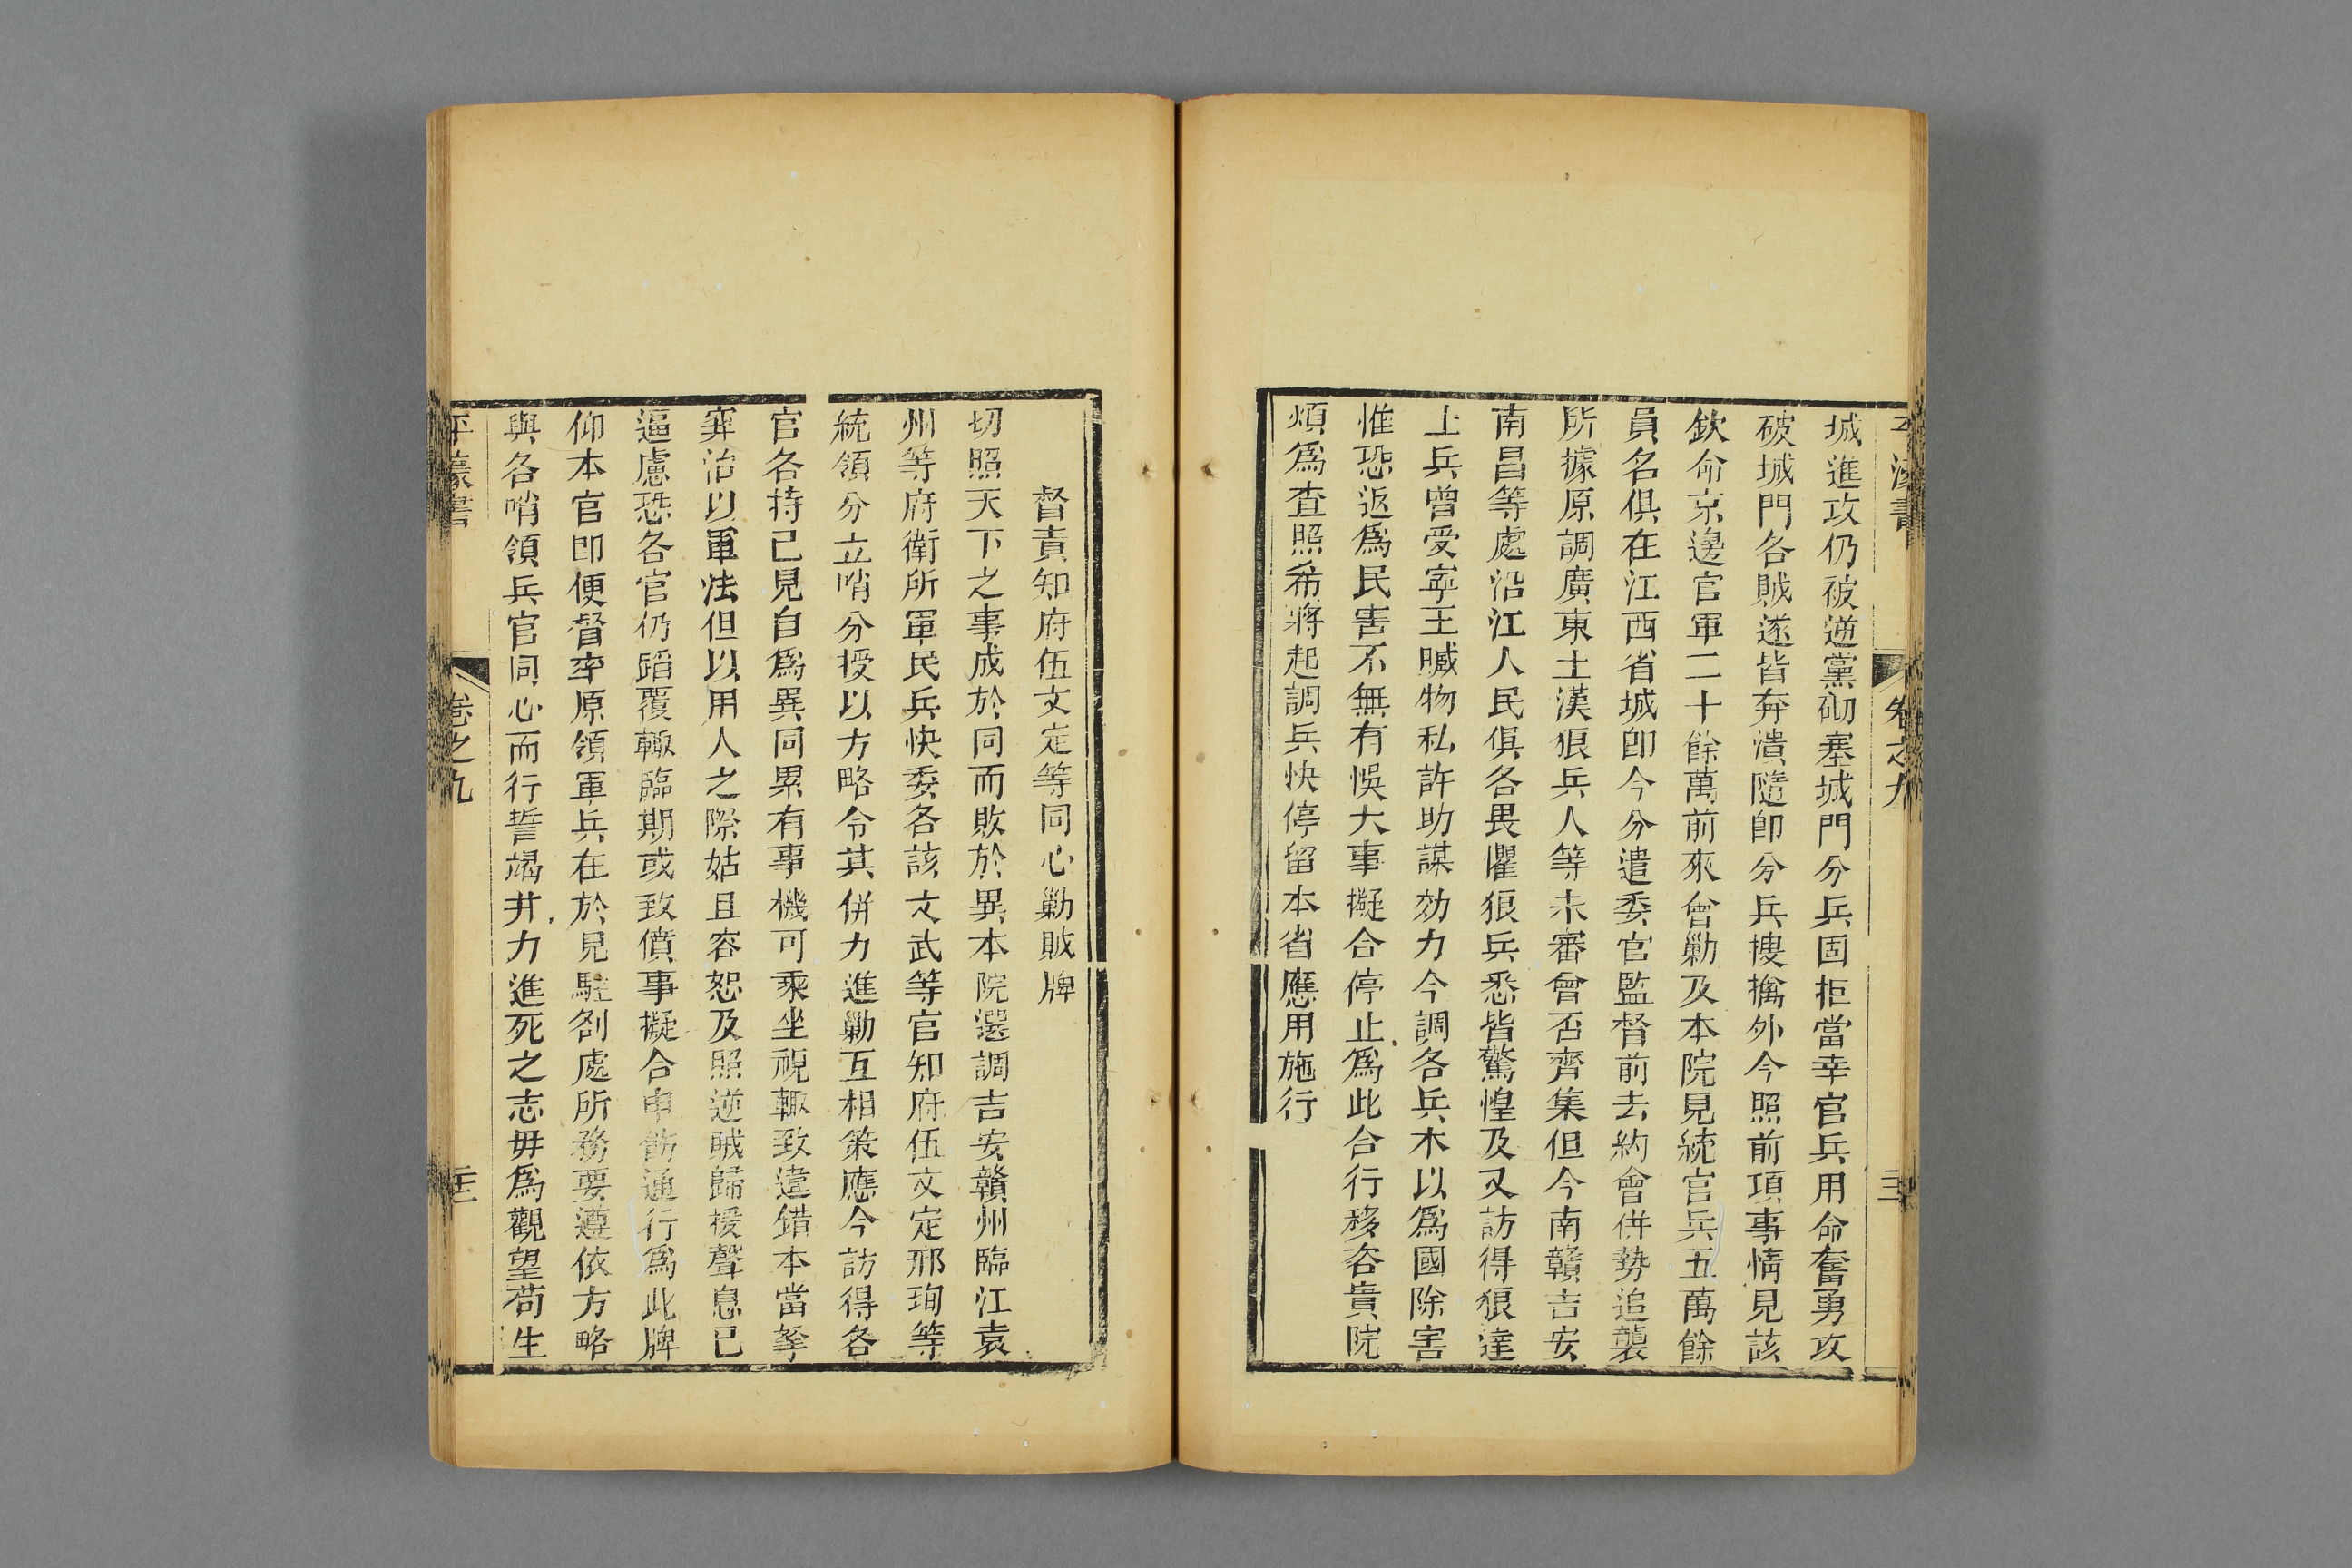 城進攻仍被逆黨砌塞城門分兵固拒當幸官兵用命奮勇攻
破城門各賊遂皆奔潰隨卽分兵搜擒外今照前項事情見該
欽命京邊官軍二十餘萬前來會勦及本院見統官兵五萬餘
員名俱在江西省城卽今分遣委官監督前去約會併勢追襲
所據原調廣東土漢狼兵人等未審曾否齊集但今南贛吉安
南昌等處沿江人民俱各畏懼狼兵悉皆驚惶及又訪得狼達
土兵曾受寧王贓物私許助謀効力今調各兵本以爲國除害
惟恐返爲民害不無有悞大事擬合停止爲此合行移咨貴院
煩爲查照希將起調兵快停留本省應用施行
督責知府伍文定等同心勦賊牌
切照天下之事成於同而敗於異本院選調吉安贛州臨江袁
州等府衛所軍民兵快委各該文武等官知府伍文定邢珣等
統領分立哨分授以方略令其併力進勦互相策應今訪得各
官各持己見自爲異同累有事機可乘坐視輒致違錯本當拏
究治以軍法但以用人之際姑且容恕及照逆賊歸援聲息已
逼慮恐各官仍蹈覆轍臨期或致僨事擬合申飭通行爲此牌
仰本官卽便督率原領軍兵在於見駐劄處所務要遵依方略
與各哨領兵官同心而行誓竭并力進死之志毋爲觀望苟生
平濠書
卷之九